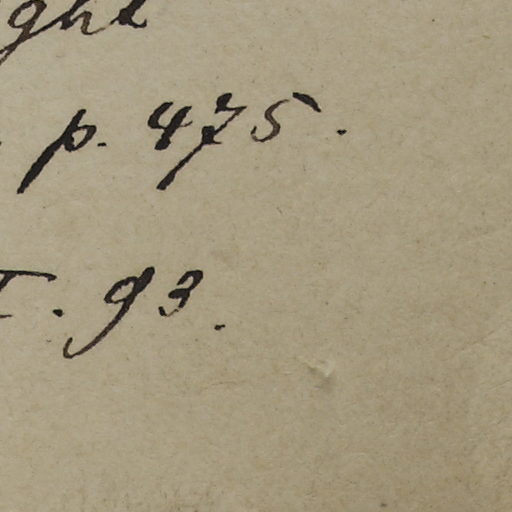 ght
p. 475.
I. 93.